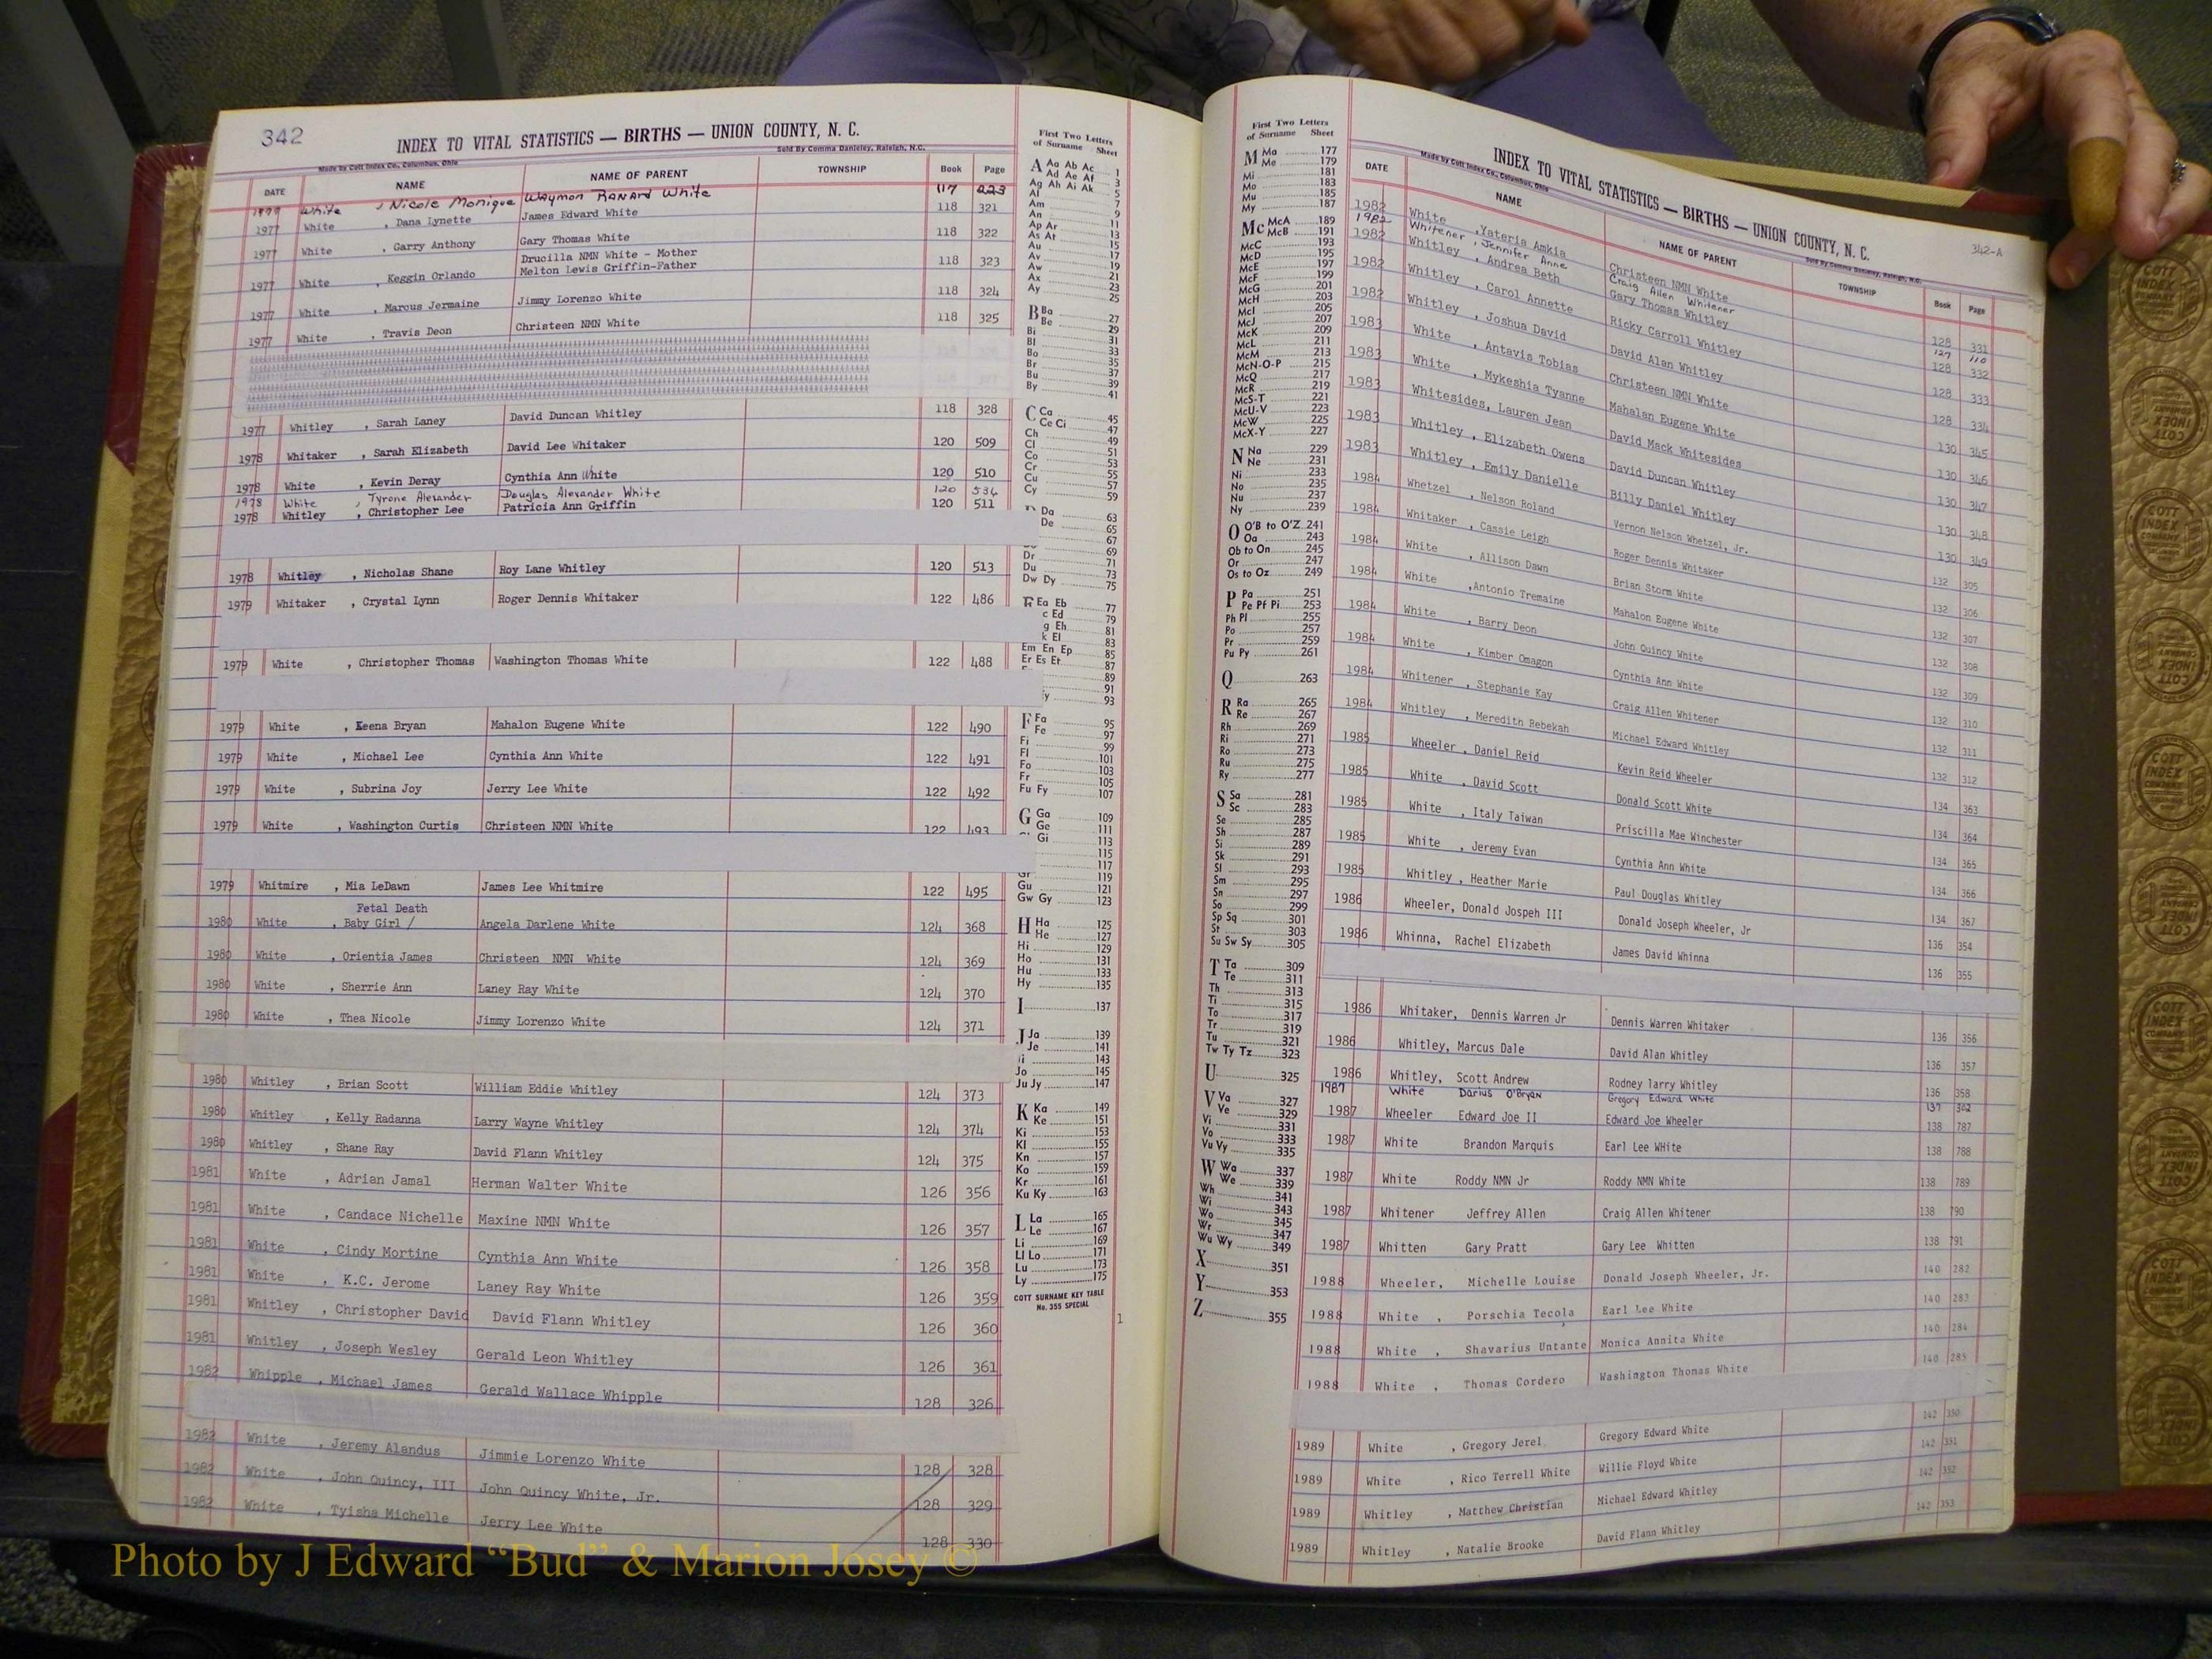 342
INDEX TO VITAL STATISTICS — BIRTHS — UNION COUNTY, N. C.
Made by Cott Index Co., Columbus, Ohio Sold By Comma Danieley, Raleigh, N.C.
DATE NAME NAME OF PARENT TOWNSHIP Book Page
White , Nicole Monique Waymon Ranard White 117 223
1977 White , Dana Lynette James Edward White 118 321
1977 White , Garry Anthony Gary Thomas White 118 322
Drucilla NMN White - Mother
1977 White , Keggin Orlando Melton Lewis Griffin-Father 118 323
1977 White , Marcus Jermaine Jimmy Lorenzo White 118 324
1977 White , Travis Deon Christeen NMN White 118 325
1977 Whitley , Sarah Laney David Duncan Whitley 118 328
1978 Whitaker , Sarah Elizabeth David Lee Whitaker 120 509
1978 White , Kevin Deray Cynthia Ann White 120 510
1978 White , Tyrone Alexander Douglas Alexander White 120 536
1978 Whitley , Christopher Lee Patricia Ann Griffin 120 511
1978 Whitley , Nicholas Shane Roy Lane Whitley 120 513
1979 Whitaker , Crystal Lynn Roger Dennis Whitaker 122 486
1979 White , Christopher Thomas Washington Thomas White 122 488
1979 White , Keena Bryan Mahalon Eugene White 122 490
1979 White , Michael Lee Cynthia Ann White 122 491
1979 White , Subrina Joy Jerry Lee White 122 492
1979 White , Washington Curtis Christeen NMN White 122 493
1979 Whitmire , Mia LeDawn James Lee Whitmire 122 495
Fetal Death
1980 White , Baby Girl / Angela Darlene White 124 368
1980 White , Orientia James Christeen NMN White 124 369
1980 White , Sherrie Ann Laney Ray White 124 370
1980 White , Thea Nicole Jimmy Lorenzo White 124 371
1980 Whitley , Brian Scott William Eddie Whitley 124 373
1980 Whitley , Kelly Radanna Larry Wayne Whitley 124 374
1980 Whitley , Shane Ray David Flann Whitley 124 375
1981 White , Adrian Jamal Herman Walter White 126 356
1981 White , Candace Nichelle Maxine NMN White 126 357
1981 White , Cindy Mortine Cynthia Ann White 126 358
1981 White , K.C. Jerome Laney Ray White 126 359
1981 Whitley , Christopher David David Flann Whitley 126 360
1981 Whitley , Joseph Wesley Gerald Leon Whitley 126 361
1982 Whipple , Michael James Gerald Wallace Whipple 128 326
1982 White , Jeremy Alandus Jimmie Lorenzo White 128 328
1982 White , John Quincy, III John Quincy White, Jr. 128 329
1982 White , Tyisha Michelle Jerry Lee White 128 330
First Two Letters
of Surname Sheet
A Aa Ab Ac 1
Ad Ae Af 3
Ag Ah Ai Ak 5
Al 7
Am 9
An 11
Ap Ar 13
As At 15
Au 17
Av 19
Aw 21
Ax 23
Ay 25
B Ba 27
Be 29
Bi 31
Bl 33
Bo 35
Br 37
Bu 39
By 41
C Ca 45
Ce Ci 47
Ch 49
Cl 51
Co 53
Cr 55
Cu 57
Cy 59
Da 63
De 65
67
Dr 69
Du 71
Dw Dy 73
75
Ea Eb 77
c Ed 79
g Eh 81
k El 83
Em En Ep 85
Er Es Et 87
89
91
y 93
F Fa 95
Fe 97
Fi 99
Fl 101
Fo 103
Fr 105
Fu Fy 107
G Ga 109
Ge 111
Gi 113
115
117
Gr 119
Gu 121
Gw Gy 123
H Ha 125
He 127
Hi 129
Ho 131
Hu 133
Hy 135
I 137
J Ja 139
Je 141
Ji 143
Jo 145
Ju Jy 147
K Ka 149
Ke 151
Ki 153
Kl 155
Kn 157
Ko 159
Kr 161
Ku Ky 163
L La 165
Le 167
Li 169
Ll Lo 171
Lu 173
Ly 175
COTT SURNAME KEY TABLE
No. 355 SPECIAL
1
First Two Letters
of Surname Sheet
M Ma 177
Me 179
Mi 181
Mo 183
Mu 185
My 187
Mc McA 189
McB 191
McC 193
McD 195
McE 197
McF 199
McG 201
McH 203
McI 205
McJ 207
McK 209
McL 211
McM 213
McN-O-P 215
McQ 217
McR 219
McS-T 221
McU-V 223
McW 225
McX-Y 227
N Na 229
Ne 231
Ni 233
No 235
Nu 237
Ny 239
O O'B to O'Z 241
Oa 243
Ob to On 245
Or 247
Os to Oz 249
P Pa 251
Pe Pf Pi 253
Ph Pl 255
Po 257
Pr 259
Pu Py 261
Q 263
R Ra 265
Re 267
Rh 269
Ri 271
Ro 273
Ru 275
Ry 277
S Sa 281
Sc 283
Se 285
Sh 287
Si 289
Sk 291
Sl 293
Sm 295
Sn 297
So 299
Sp Sq 301
St 303
Su Sw Sy 305
T Ta 309
Te 311
Th 313
Ti 315
To 317
Tr 319
Tu 321
Tw Ty Tz 323
U 325
V Va 327
Ve 329
Vi 331
Vo 333
Vu Vy 335
W Wa 337
We 339
Wh 341
Wi 343
Wo 345
Wr 347
Wu Wy 349
X 351
Y 353
Z 355
342-A
INDEX TO VITAL STATISTICS — BIRTHS — UNION COUNTY, N. C.
Made by Cott Index Co., Columbus, Ohio Sold By Comma Danieley, Raleigh, N.C.
DATE NAME NAME OF PARENT TOWNSHIP Book Page
1982 White , Xateria Amkia Christeen NMN White 128 331
1982 Whitener , Jennifer Anne Craig Allen Whitener 127 110
1982 Whitley , Andrea Beth Gary Thomas Whitley 128 332
1982 Whitley , Carol Annette Ricky Carroll Whitley 128 333
1982 Whitley , Joshua David David Alan Whitley 128 334
1983 White , Antavis Tobias Christeen NMN White 130 345
1983 White , Mykeshia Tyanne Mahalan Eugene White 130 346
1983 Whitesides, Lauren Jean David Mack Whitesides 130 347
1983 Whitley , Elizabeth Owens David Duncan Whitley 130 348
1983 Whitley , Emily Danielle Billy Daniel Whitley 130 349
1984 Whetzel , Nelson Roland Vernon Nelson Whetzel, Jr. 132 305
1984 Whitaker , Cassie Leigh Roger Dennis Whitaker 132 306
1984 White , Allison Dawn Brian Storm White 132 307
1984 White ,Antonio Tremaine Mahalon Eugene White 132 308
1984 White , Barry Deon John Quincy White 132 309
1984 White , Kimber Omagon Cynthia Ann White 132 310
1984 Whitener , Stephanie Kay Craig Allen Whitener 132 311
1984 Whitley , Meredith Rebekah Michael Edward Whitley 132 312
1985 Wheeler , Daniel Reid Kevin Reid Wheeler 134 363
1985 White , David Scott Donald Scott White 134 364
1985 White , Italy Taiwan Priscilla Mae Winchester 134 365
1985 White , Jeremy Evan Cynthia Ann White 134 366
1985 Whitley , Heather Marie Paul Douglas Whitley 134 367
1986 Wheeler, Donald Jospeh III Donald Joseph Wheeler, Jr 136 354
1986 Whinna, Rachel Elizabeth James David Whinna 136 355
1986 Whitaker, Dennis Warren Jr Dennis Warren Whitaker 136 356
1986 Whitley, Marcus Dale David Alan Whitley 136 357
1986 Whitley, Scott Andrew Rodney larry Whitley 136 358
1987 White Darius O'Bryan Gregory Edward White 137 362
1987 Wheeler Edward Joe II Edward Joe Wheeler 138 787
1987 White Brandon Marquis Earl Lee WHite 138 788
1987 White Roddy NMN Jr Roddy NMN White 138 789
1987 Whitener Jeffrey Allen Craig Allen Whitener 138 790
1987 Whitten Gary Pratt Gary Lee Whitten 138 791
1988 Wheeler, Michelle Louise Donald Joseph Wheeler, Jr. 140 282
1988 White , Porschia Tecola Earl Lee White 140 283
1988 White , Shavarius Untante Monica Annita White 140 284
1988 White , Thomas Cordero Washington Thomas White 140 285
1989 White , Gregory Jerel Gregory Edward White 142 350
1989 White , Rico Terrell White Willie Floyd White 142 351
1989 Whitley , Matthew Christian Michael Edward Whitley 142 352
1989 Whitley , Natalie Brooke David Flann Whitley 142 353
COTT
INDEX
COMPANY
Photo by J Edward “Bud” & Marion Josey ©